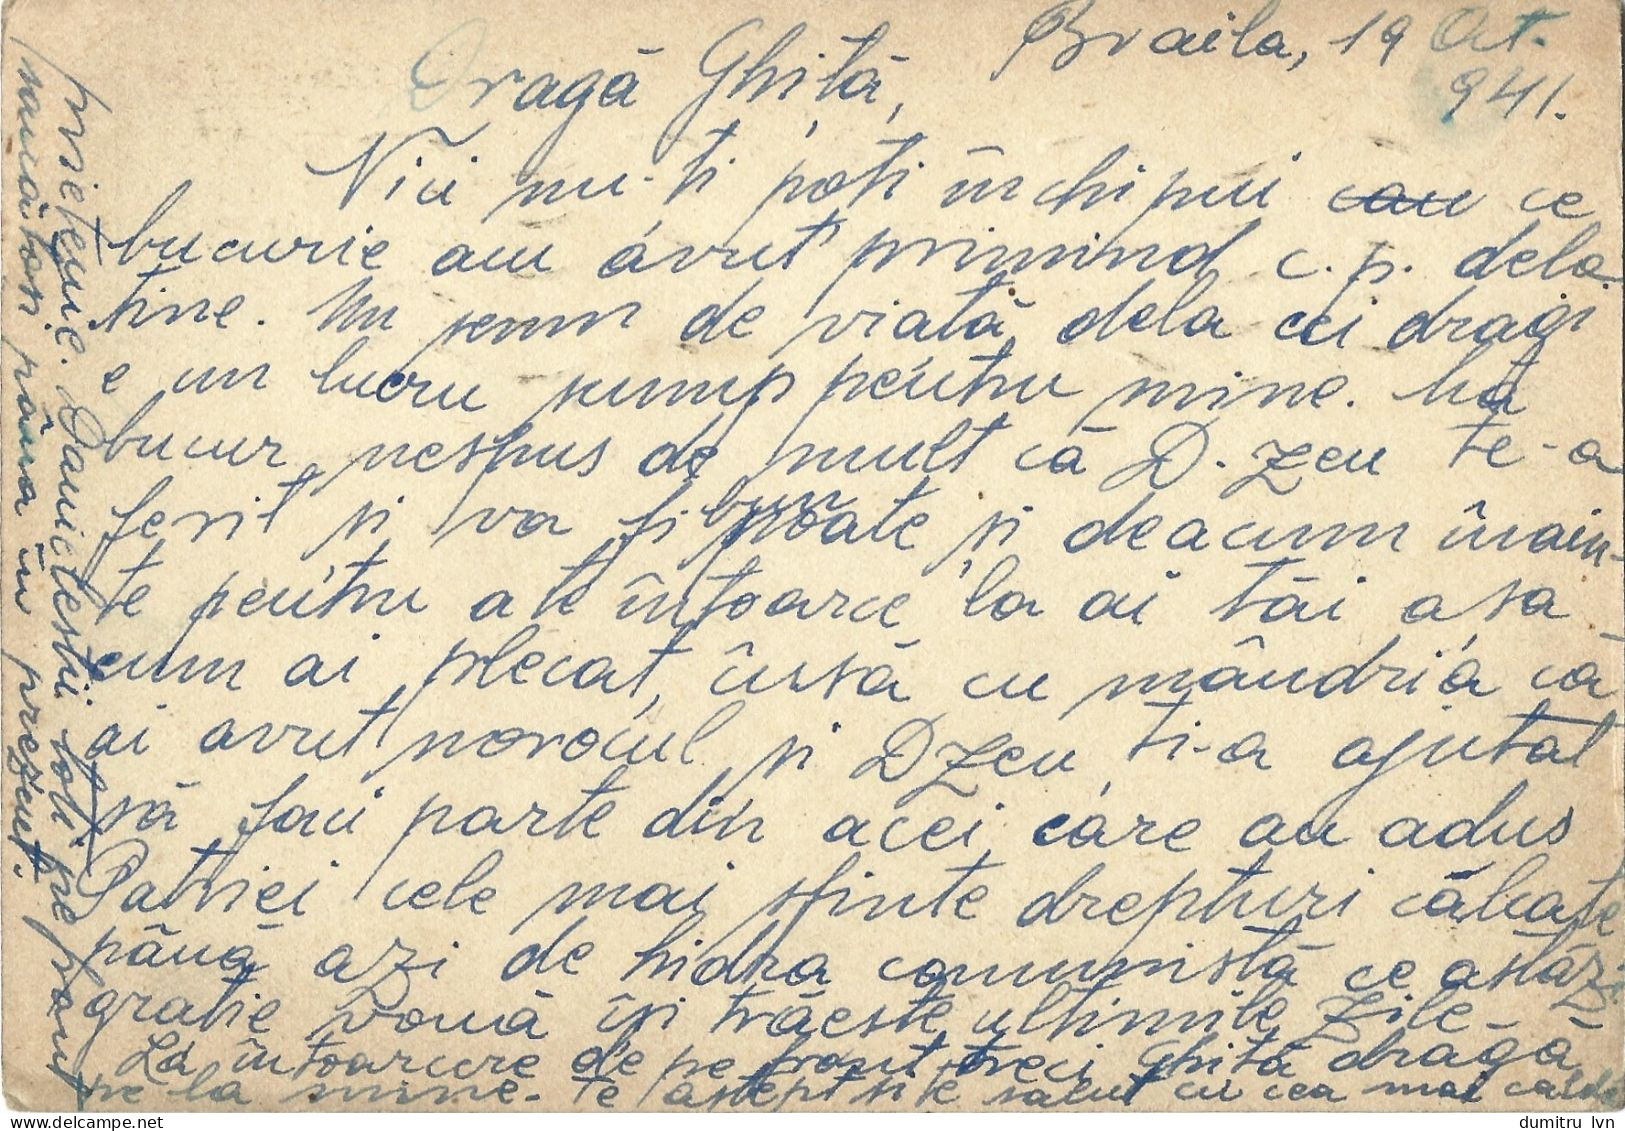 Braila, 19 Oct.
941.
Dragă Ghiţă,
Nici nu-ţi poţi închipui cau ce
bucurie am avut primind c.p. dela
tine. Un semn de viaţă dela cei dragi
e un lucru scump pentru mine. Mă
bucur nespus de mult că D.zeu te-a
ferit şi va fi bun poate şi deacum înain-
te pentru a te întoarce la ai tăi aşa
cum ai plecat, însă cu mândria că
ai avut norocul şi DZeu ţi-a ajutat
să faci parte din acei care au adus
Patriei cele mai sfinte drepturi călcate
până azi de hidra comunistă ce astăzi
graţie vouă îşi trăeşte ultimile zile.
La întoarcere de pe front treci Ghiţă dragă
pe la mine. Te aştept şi te salut cu cea mai caldă
prietenie. Danicieştii toti pe front
sunt
până în prezent.
dumitru_lvn